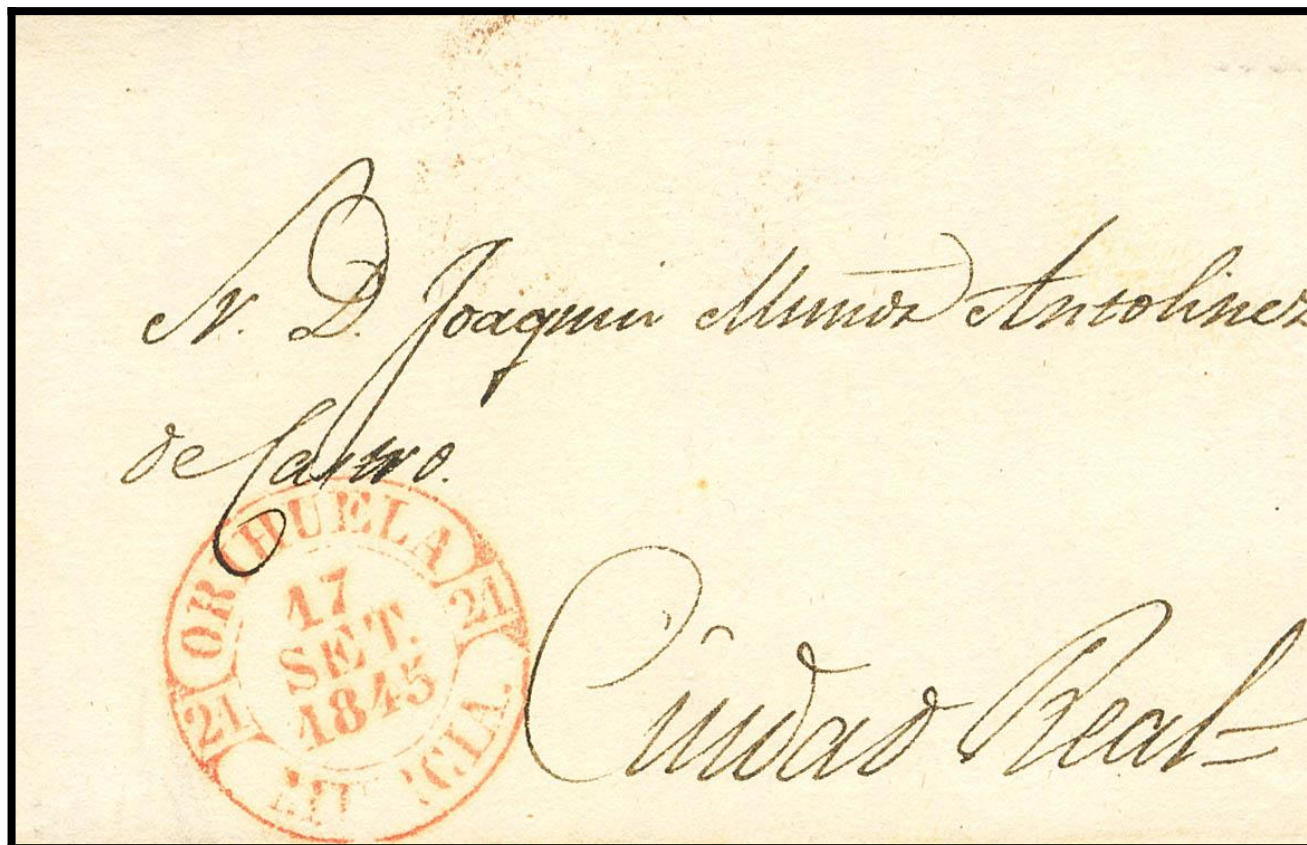 Sr. D. Joaquin Muñoz Antolinez
de Castro.
ORIHUELA
21
17
SET.
1845
21
MURCIA.
Ciudad Real